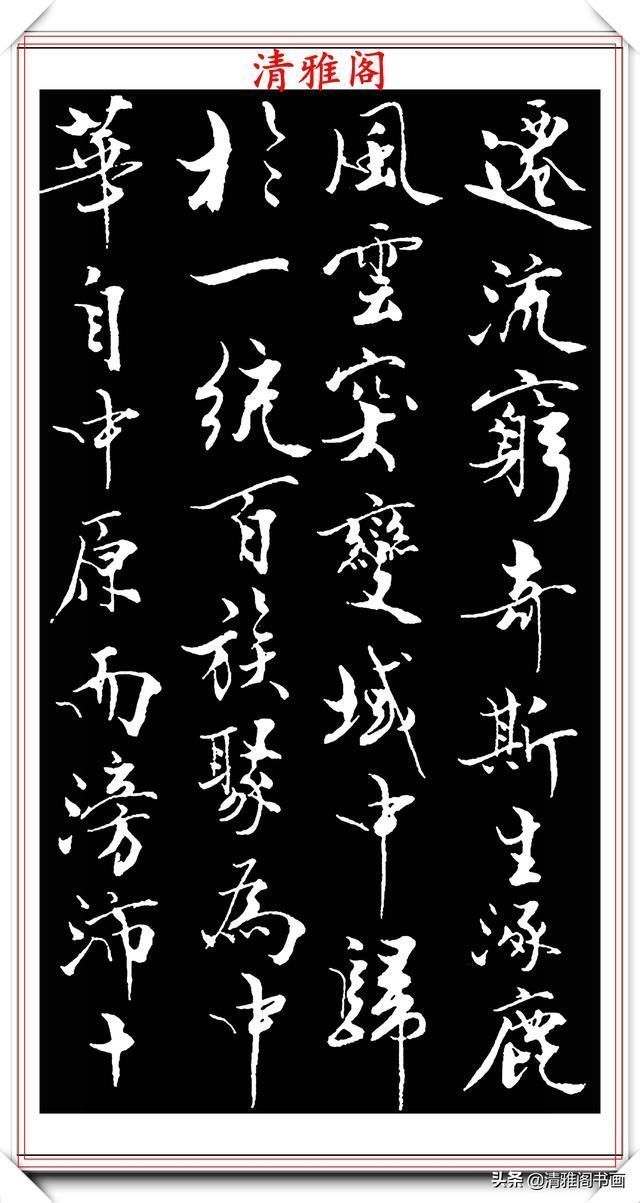 清雅阁
遷流窮奇斯生涿鹿
風雲突變域中歸
於一統百族聚為中
華自中原而滂沛十
头条@清雅阁书画